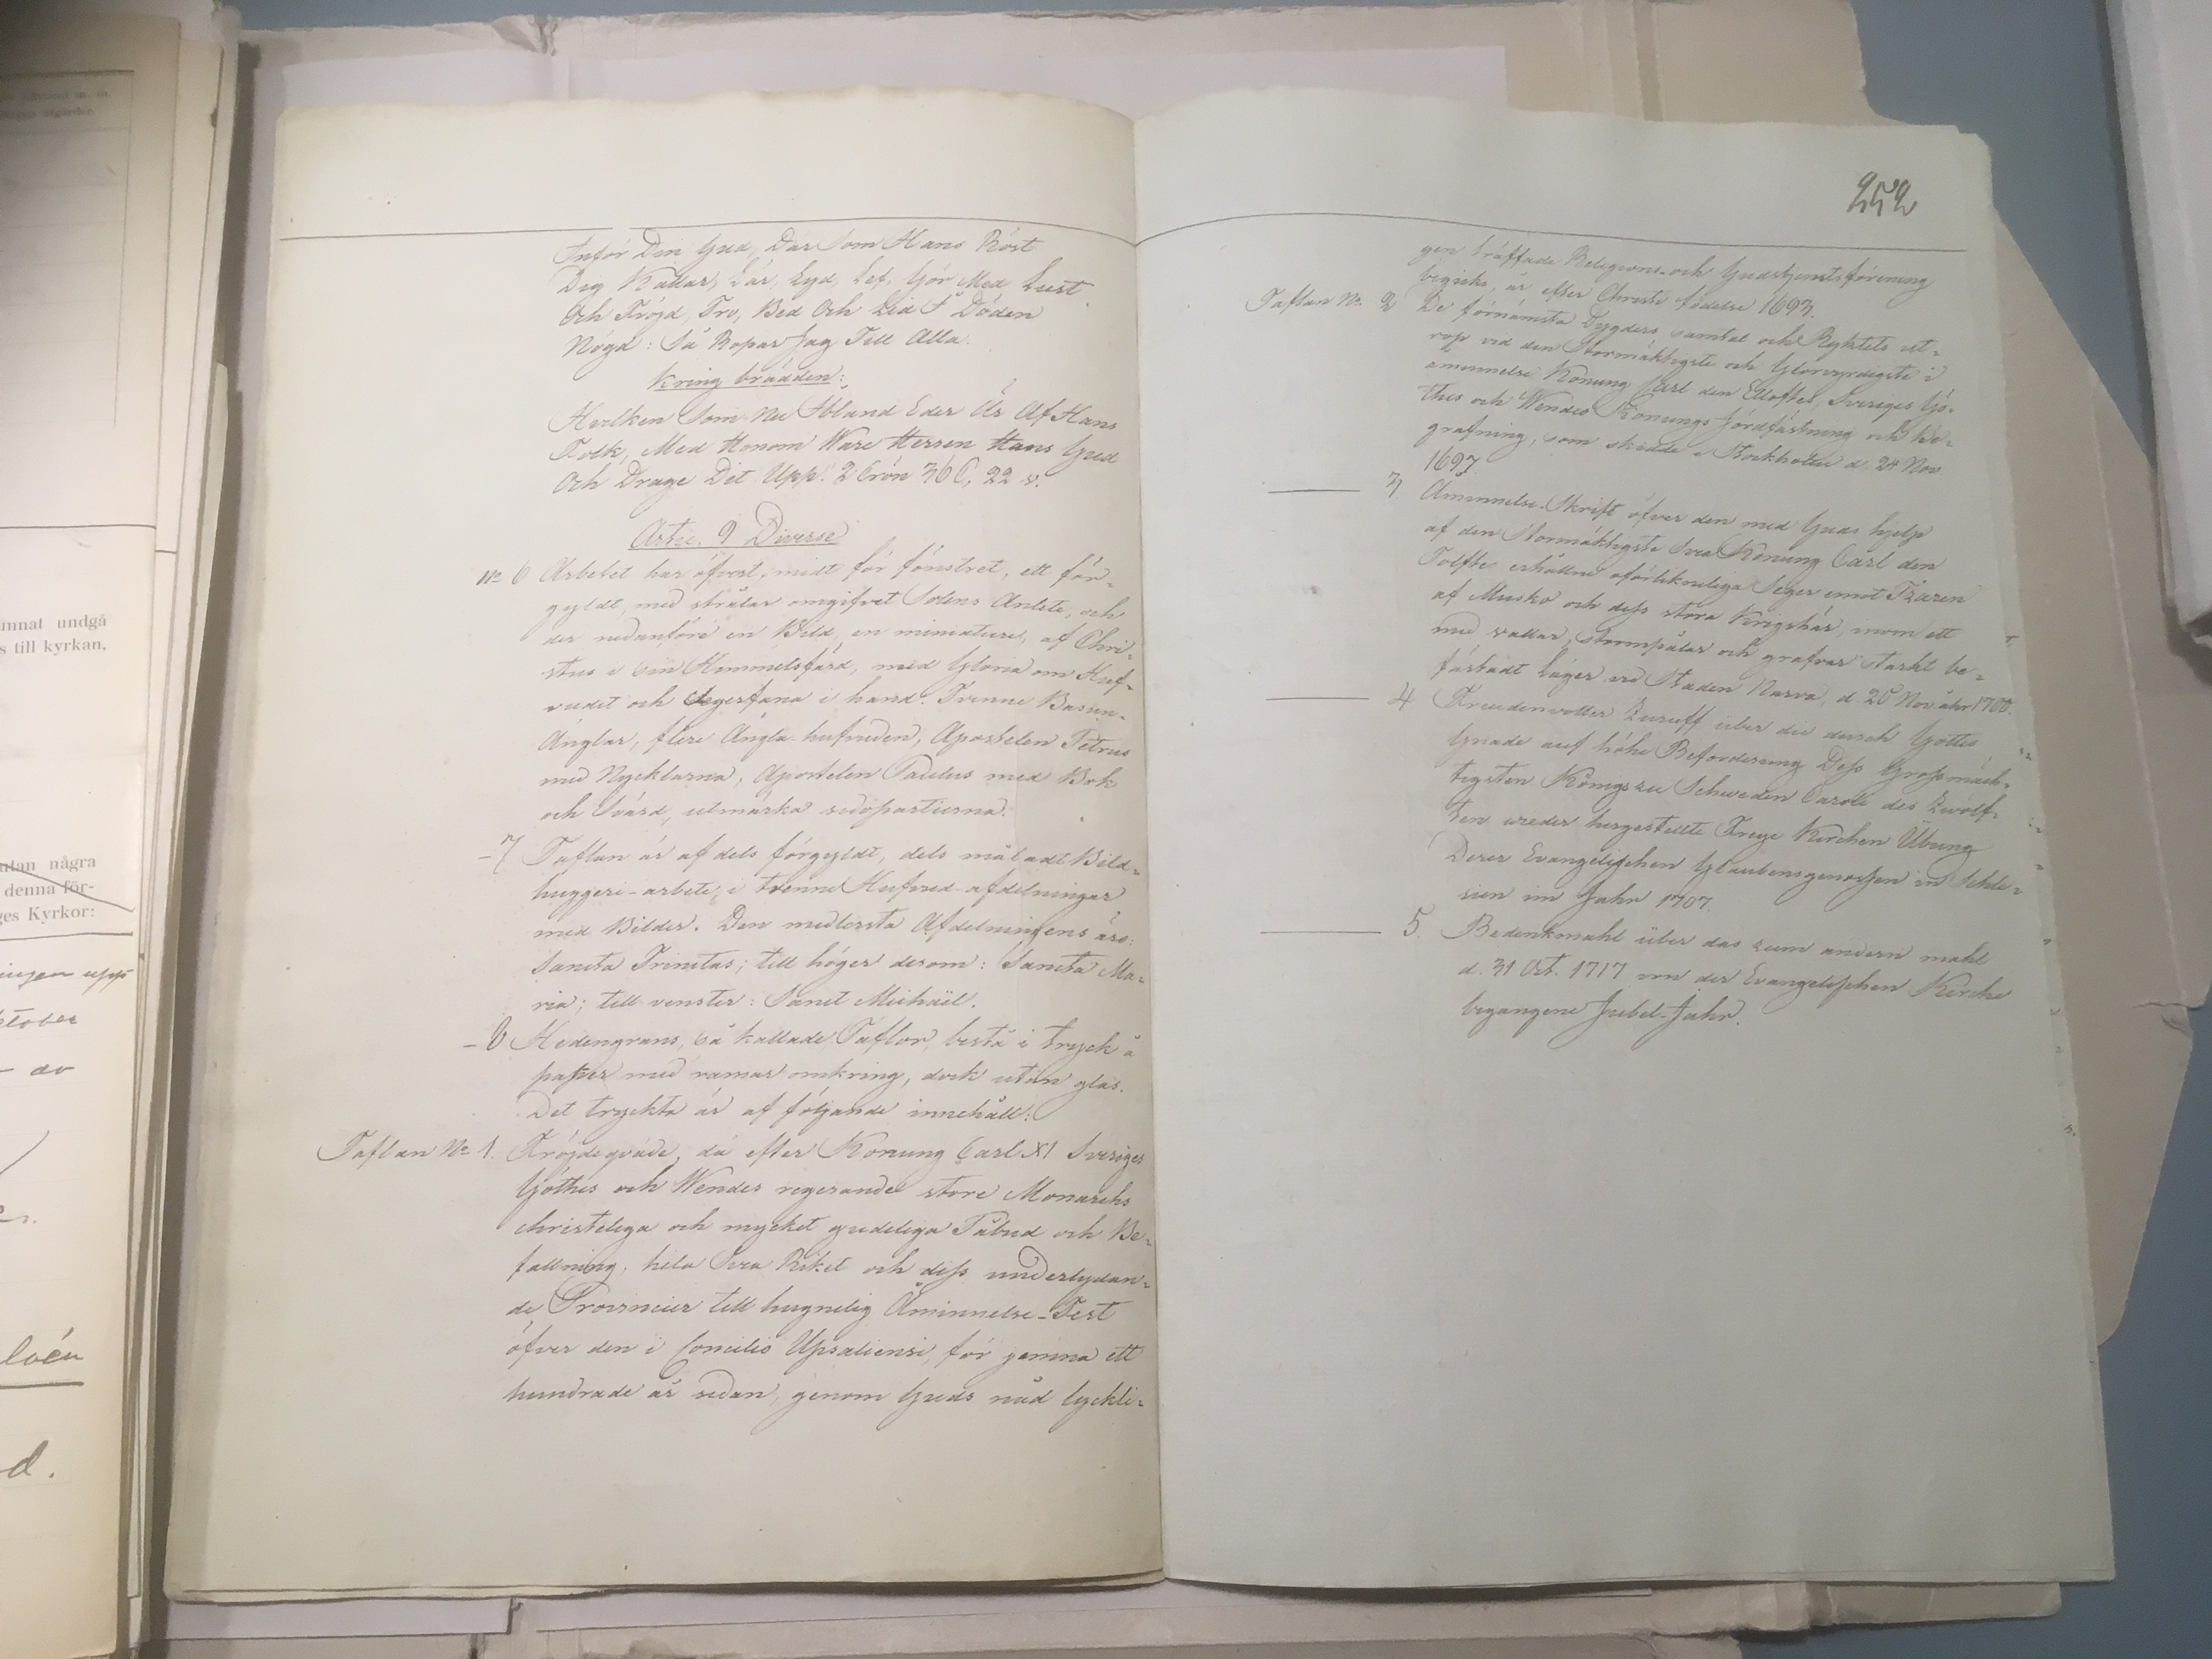 innat undgå
s till kyrkan,
utan några
denna för-
ges Kyrkor:
ingen upp-
ktober
- av
d.
Inför Din Gud, Där Som Hans Röst
Dig Kallar, Lär, Lyd, Lef, Gör Med Lust
Och Fröjd, Tro, Bed Och Lid I Döden
Nögd: Så Ropar Jag Till Alla.
Kring brädden:
Hvilken Som Nu Ibland Eder Är Af Hans
Folk, Med Honom Ware Herren Hans Gud
Och Drage Dit Upp. 2 Crön 36 C, 22 v.
Artic. 9 Diverse
No 6 Arbetet har öfverst, midt för fönstret, ett för-
gyldt, med strålar omgifvet Solens Anlete, och
der nedanföre en Bild, en miniature, af Chri-
stus i sin Himmelsfärd, med Gloria om Huf-
vudet och Segerfana i hand. Tvenne Basun-
Änglar, flere Ängla-hufvuden, Apostelen Petrus
med Nycklarna, Apostelen Paulus med Bok
och Svärd, utmärka sidopartierna.
- 7 Taflan är af dels förgyldt, dels måladt Bild-
huggeri-arbete, i trenne Hufvud-afdelningar
med Bilder. Den medlersta Afdelningens äro:
Sancta Trinitas; till höger derom: Sancta Ma-
ria; till venster: Sanct Michäel.
- 8 Hedengrans, så kallade Taflor, bestå i tryck å
papper med ramar omkring, dock utan glas.
Det tryckta är af följande innehåll:
Taflan No 1. Fröjdeqväde, då efter Konung Carl XI Sveriges
Göthes och Wendes regerande store Monarchs
christeliga och mycket gudeliga Påbud och Be-
fallning, hela Svea Riket och dess underlydan-
de Provincier till hugnelig Åminnelse-Fest
öfver den i Concilio Upsaliensi, för jemna ett
hundrade år sedan, genom Guds nåd lyckli-
252
gen träffade Religions- och Gudstjenstsförening
begicks, år efter Christi födelse 1693.
Taflan No 2 De förnämsta Dygders samtal och Ryktets ut-
rop vid den Stormäktigste och Glorvyrdigste i
åminnelse Konung Carl den Elloftes, Sveriges Gö-
thes och Wendes Konungs Jordfästning och Be-
grafning, som skedde i Stockholm d. 24 Nov.
1697.
3. Åminnelse-Skrift öfver den med Guds hjelp
af den Stormäktigste Svea Konung Carl den
Tolfte erhållne oförlikneliga Seger emot Tzaren
af Musko och dess stora Krigshär, inom ett
med vallar, stormpålar och grafvar starkt be-
fästadt Läger vid Staden Narva, d. 20 Nov. åhr 1700.
4 Freudenvoller Zuruff über die durch Gottes
Gnade auf höhe Beforderung Dess Grossmäch-
tigsten Königs zu Schweden Caroli des Zwölf-
ten wieder hergestellte Freye Kirchen Übung
Derer Evangelischen Glaubensgenossen in Schle-
sien im Jahr 1707.
5. Bedenkmahl über das zum andern mahl
d. 31 Oct. 1717 von der Evangelischen Kirche
begangene Jubel-Jahr.